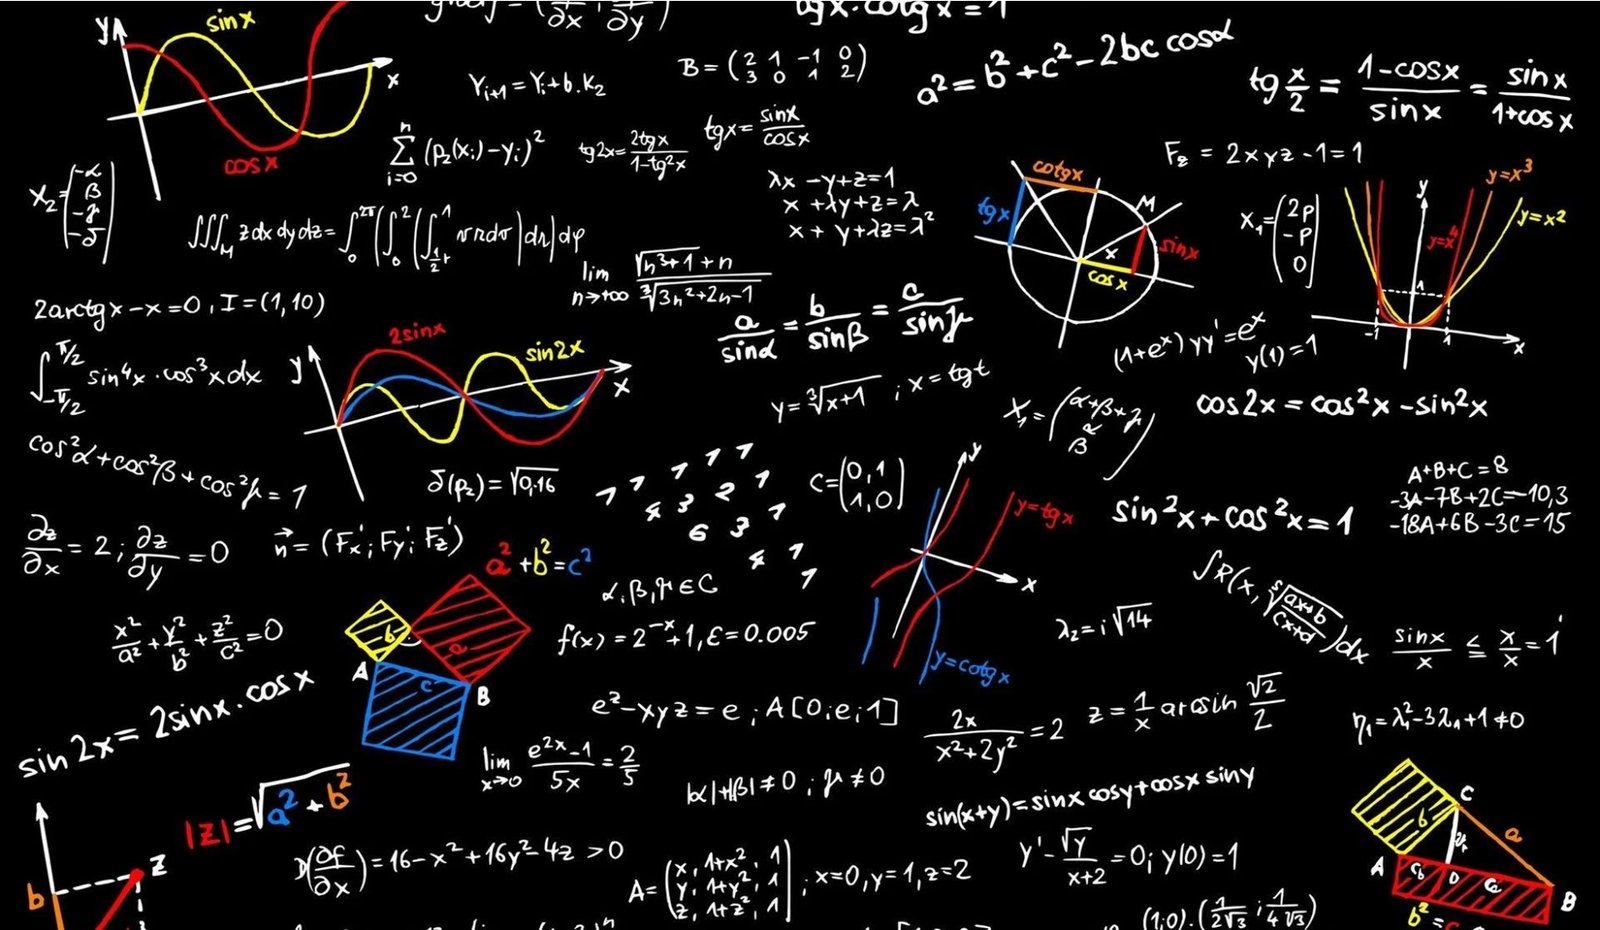 y
sinx
x
cosx
tgx·cotgx=1
Y_{i+1}=Y_i+b.K_2
B=(2 1 -1 0
3 0 1 2)
a²=b²+c²-2bc cosα
tg x/2 = (1-cosx)/sinx = sinx/(1+cosx)
∑_{i=0}^{n} (p_2(x_i)-y_i)²
tg2x=2tgx/(1-tg²x)
tgx=sinx/cosx
F_z = 2xyz-1=1
X_2=(-α
β
-γ
-δ)
λx -y+z=1
x +λy+z=λ
x + y+λz=λ²
cotgx
tgx
M
sinx
x
cosx
X_1=(2p
-p
0)
y
y=x³
y=x²
y=x⁴
1
-1
1
x
∭_M zdxdydz=
lim_{n→+∞} (√(n³+1)+n)/∛(3n²+2n-1)
2arctgx-x=0, I=(1,10)
a/sinα=b/sinβ=c/sinγ
(1+eˣ)yy'=eˣ
y(1)=1
∫_{-π/2}^{π/2} sin⁴x·cos³xdx
y
2sinx
sin2x
x
y=∛(x+1) ; x=tgt
X_1=(α+β+γ
β)
cos2x=cos²x-sin²x
cos²α+cos²β+cos²γ=1
δ(p_2)=√0,16
C=(0,1
1,0)
y
y=tgx
x
y=cotgx
sin²x+cos²x=1
A+B+C=8
-3A-7B+2C=-10,3
-18A+6B-3C=15
∂z/∂x=2;∂z/∂y=0
n⃗=(Fx';Fy';Fz')
a²+b²=c²
b
a
c
A
B
α,β,γ∈C
∫R(x,⁵√((ax+b)/(cx+d)))dx
x²/a²+y²/b²+z²/c²=0
f(x)=2⁻ˣ+1,ε=0.005
λ_2=i√14
sinx/x ≤ x/x=1
sin2x=2sinx·cosx
e^z-xyz=e;A[0;e;1]
2x/(x²+2y²)=2
z=1/x arcsin √2/2
η_1=λ_1²-3λ_1+1≠0
lim_{x→0} (e^{2x}-1)/5x=2/5
|α|+|β|≠0;γ≠0
sin(x+y)=sinx cosy+cosx siny
|z|=√(a²+b²)
z
b
=16-x²+16y²-4z>0
A=(x, 1+x², 1
y, 1+y², 1
z, 1+z², 1);x=0,y=1,z=2
y'-√y/(x+2)=0;y(0)=1
C
b
a
A
D
B
b²=
(1;0).(1/2√3;1/4√3)